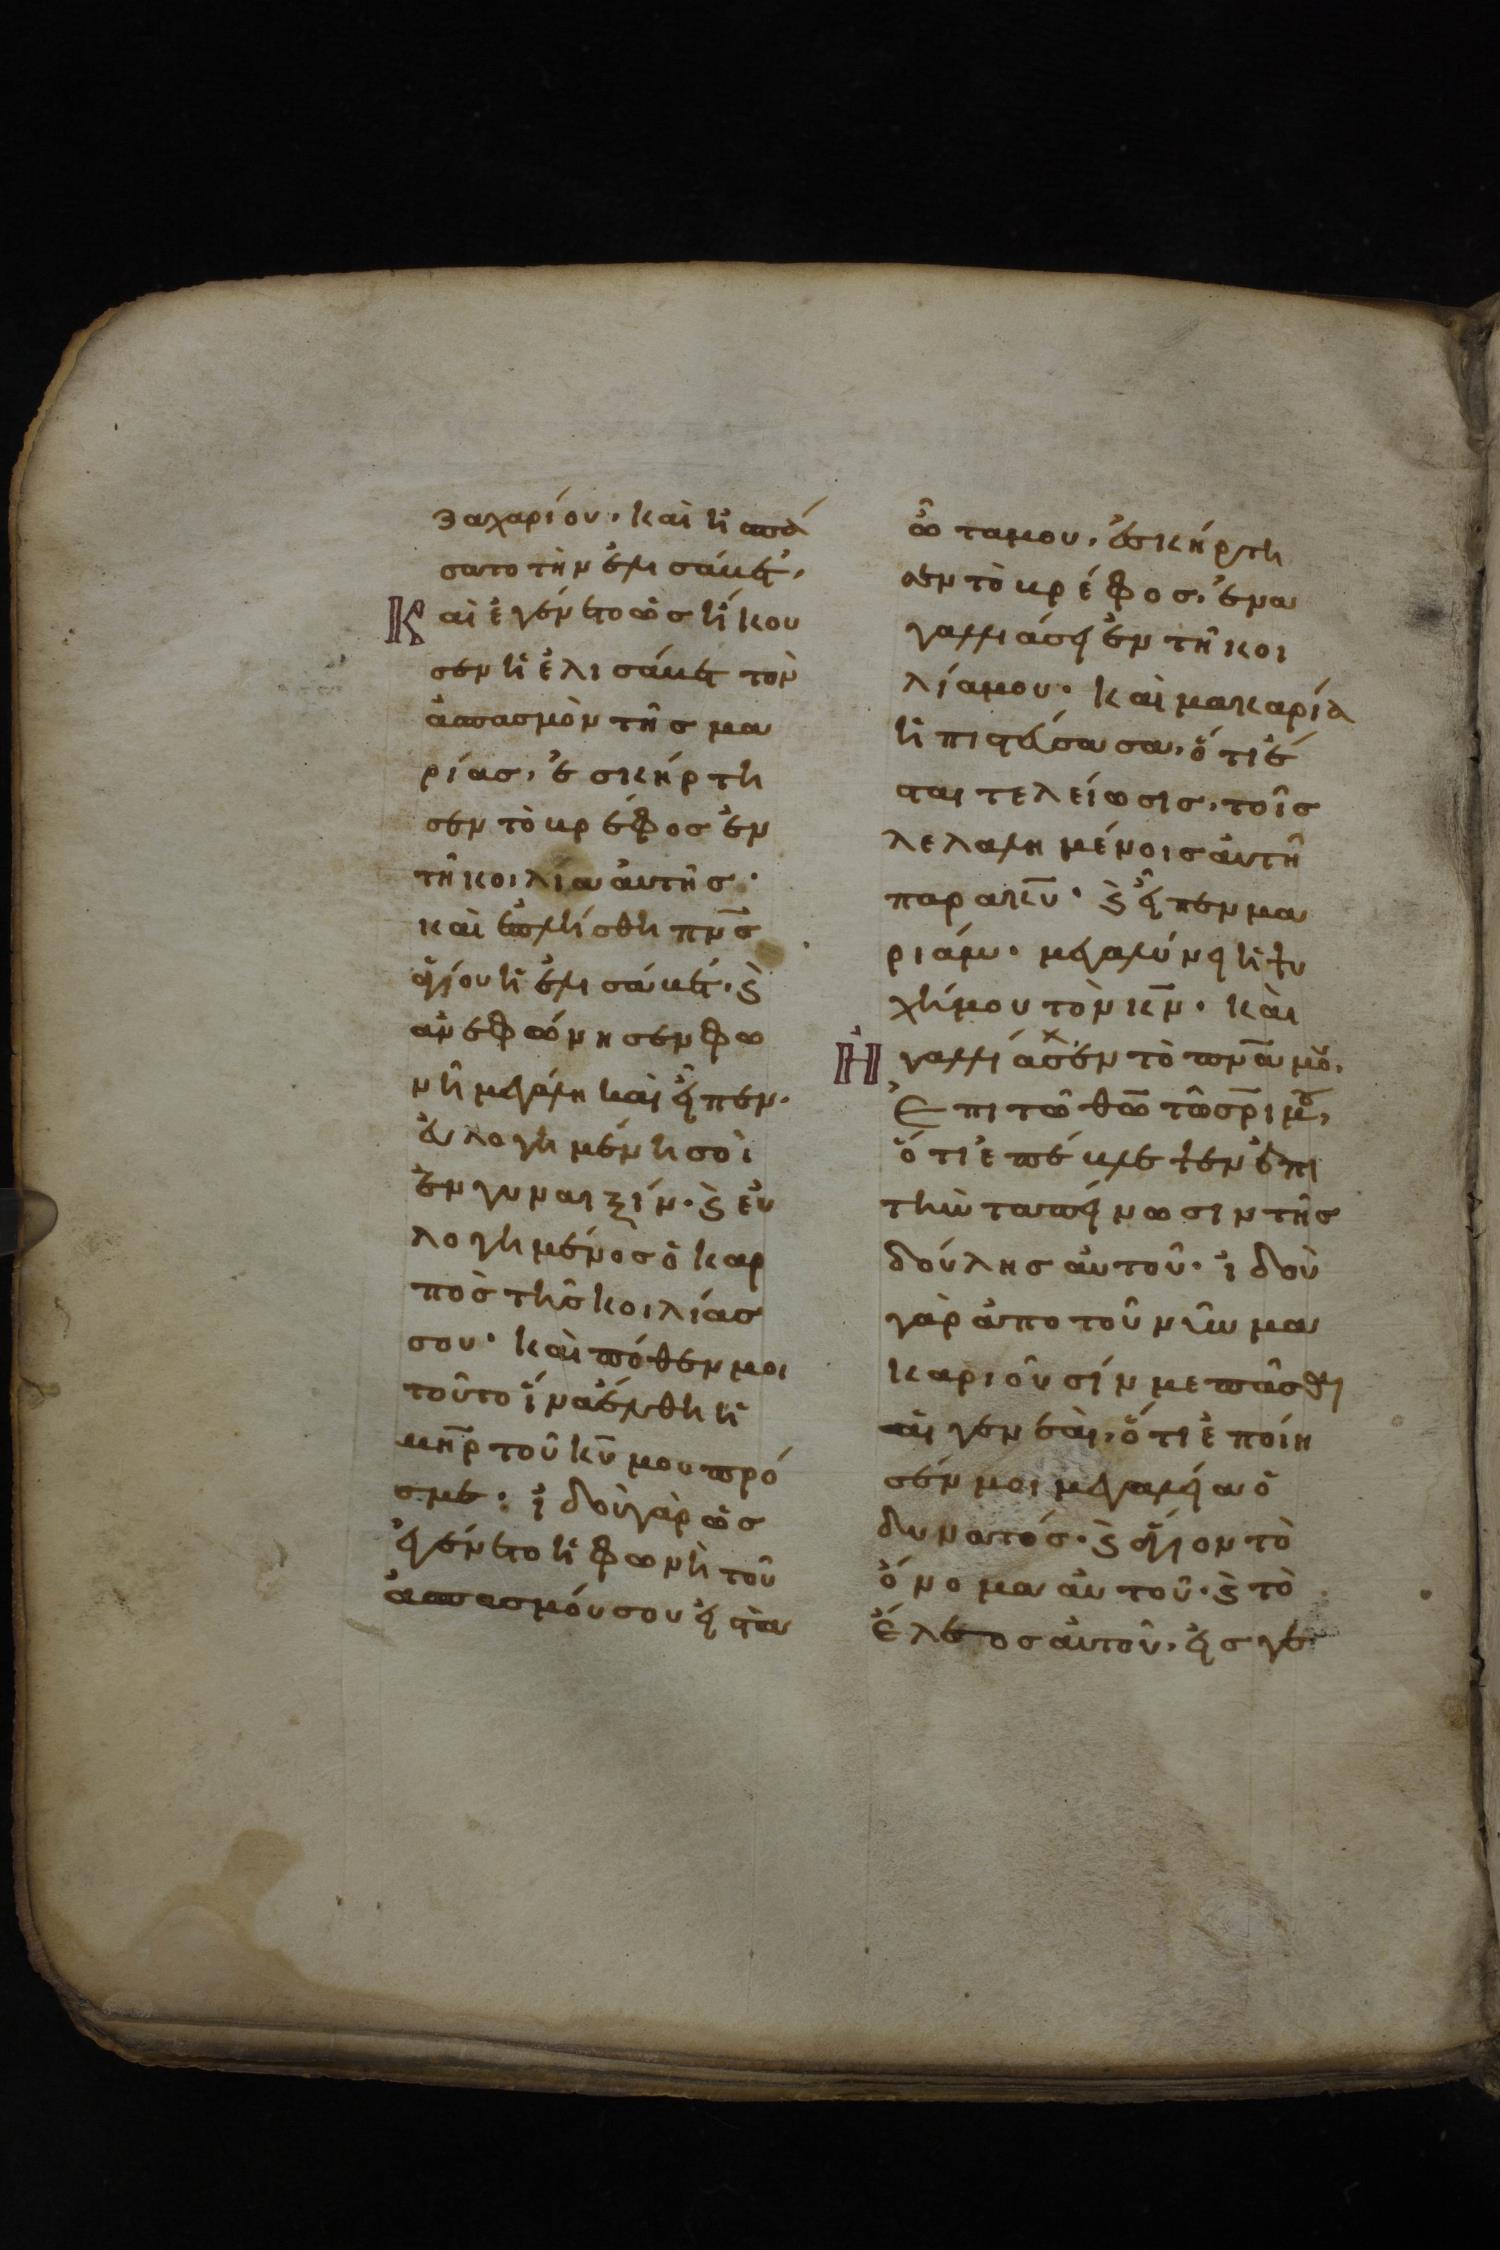 ζαχαρίου· καὶ ἠσπά
σατο τὴν ἐλισάβετ·
Καὶ ἐγένετο ὡς ἤκου
σεν ἡ ἐλισάβετ τὸν
ἀσπασμὸν τῆς μα
ρίας· ἐσκίρτη
σεν τὸ βρέφος ἐν
τῆ κοιλία αὐτῆς·
καὶ ἐπλήσθη πν̅ς
ἁγίου ἡ ἐλισάβετ· ϗ
ἀνεφώνησεν φω
νῆ μεγάλη καὶ εἶπεν·
εὐλογημένη σοὶ
ἐν γυναιξίν· ϗ εὐ
λογημένος ὁ καρ
πὸς τῆς κοιλίας
σου· καὶ πόθεν μοι
τοῦτο ἵνα ἔλθη ἡ
μη̅ρ τοῦ κ̅υ μου πρό
σμε· ἰδοὺ γὰρ ὡς
ἐγένετο ἡ φωνὴ τοῦ
ἀσπασμόυ σου εἰς τὰ
ὦτα μου· ἐσκήρτη
σεν τὸ βρέφος· ἐνα
γαλλιάσει ἐν τῆ κοι
λία μου· καὶ μακαρία
ἡ πιστεύσασα· ὅτι ἔ
σται τελείωσις· τοῖς
λελαλημένοις αὐτῆ
παρα κ̅υ· ϗ εἶπεν μα
ριάμ· μεγαλύνει ἡ ψυ
χή μου τὸν κ̅ν· καὶ
Ἠγαλλίασεν τὸ πν̅α μου·
Ἐπι τῶ θ̅ω τῶ σ̅ρι μου·
ὅτι ἐπέβλεψεν ἐπι
τὴν ταπείνωσιν τῆς
δούλης αὐτοῦ· ἰδοὺ
γὰρ ἀπο τοῦ νῦν μα
καριοῦσίν με πᾶσαι
αἱ γενεαὶ· ὅτι ἐποίη
σέν μοι μεγαλεία ὁ
δυνατός· ϗ ἅγιον τὸ
ὄνομα αὐτοῦ· ϗ τὸ
ἔλεος αὐτοῦ· εἰς γε